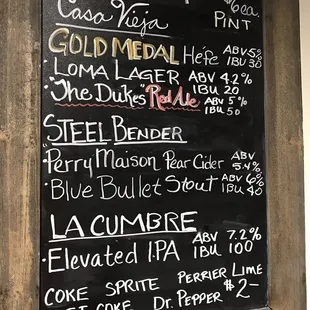 Casa Vieja
$6ea.
PINT
GOLD MEDAL Hefe ABV 5%
IBU 30
LOMA LAGER ABV 4.2%
IBU 20
"The Dukes" Red Ale ABV 5%
IBU 50
STEEL BENDER
Perry Maison Pear Cider ABV
5.4%
Blue Bullet Stout ABV 6%
IBU 40
LA CUMBRE
Elevated IPA ABV 7.2%
IBU 100
COKE SPRITE PERRIER LIME
COKE Dr. PEPPER $2-